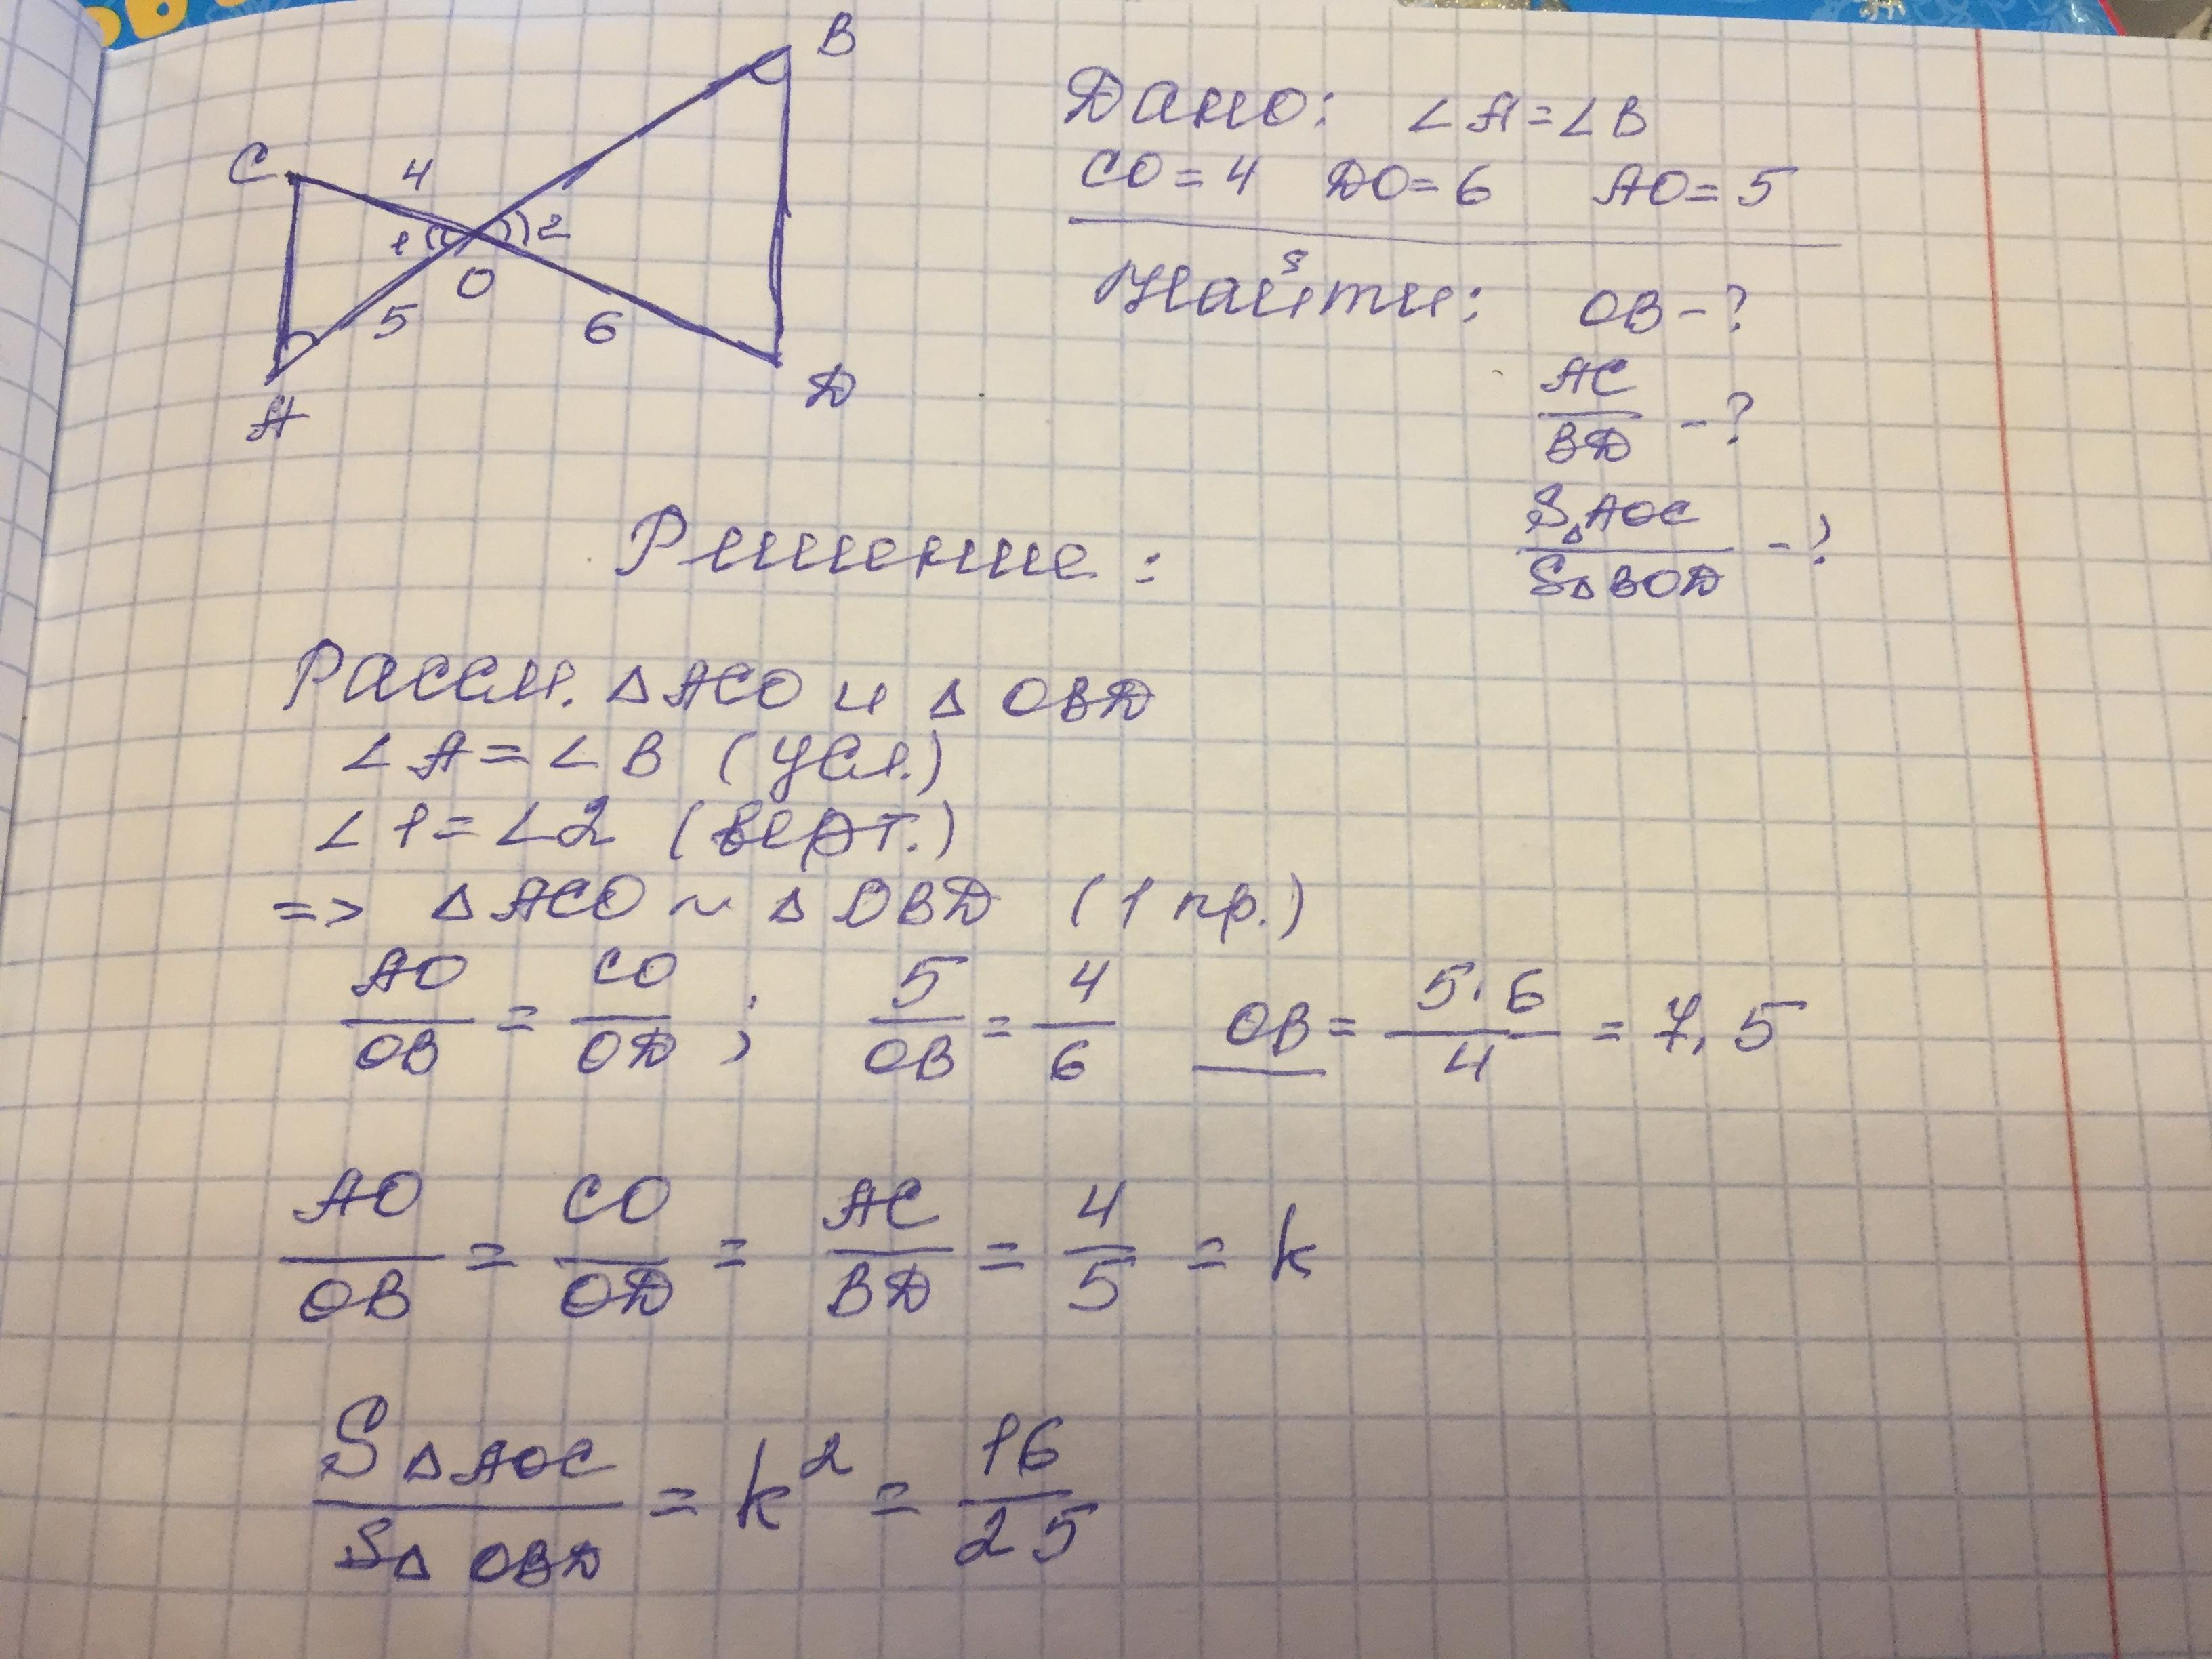 B
C 4
1 2
O
5 6
A
D
Дано: ∠A=∠B
CO=4 DO=6 AO=5
Найти: OB-?
AC/BD -?
S△AOC/S△BOD -?
Решение:
Рассм. △ACO и △OBD
∠A=∠B (усл.)
∠1=∠2 (верт.)
=> △ACO ~ △OBD (1 пр.)
AO/OB = CO/OD ; 5/OB = 4/6 OB = 5·6/4 = 7,5
AO/OB = CO/OD = AC/BD = 4/5 = k
S△AOC/S△OBD = k² = 16/25